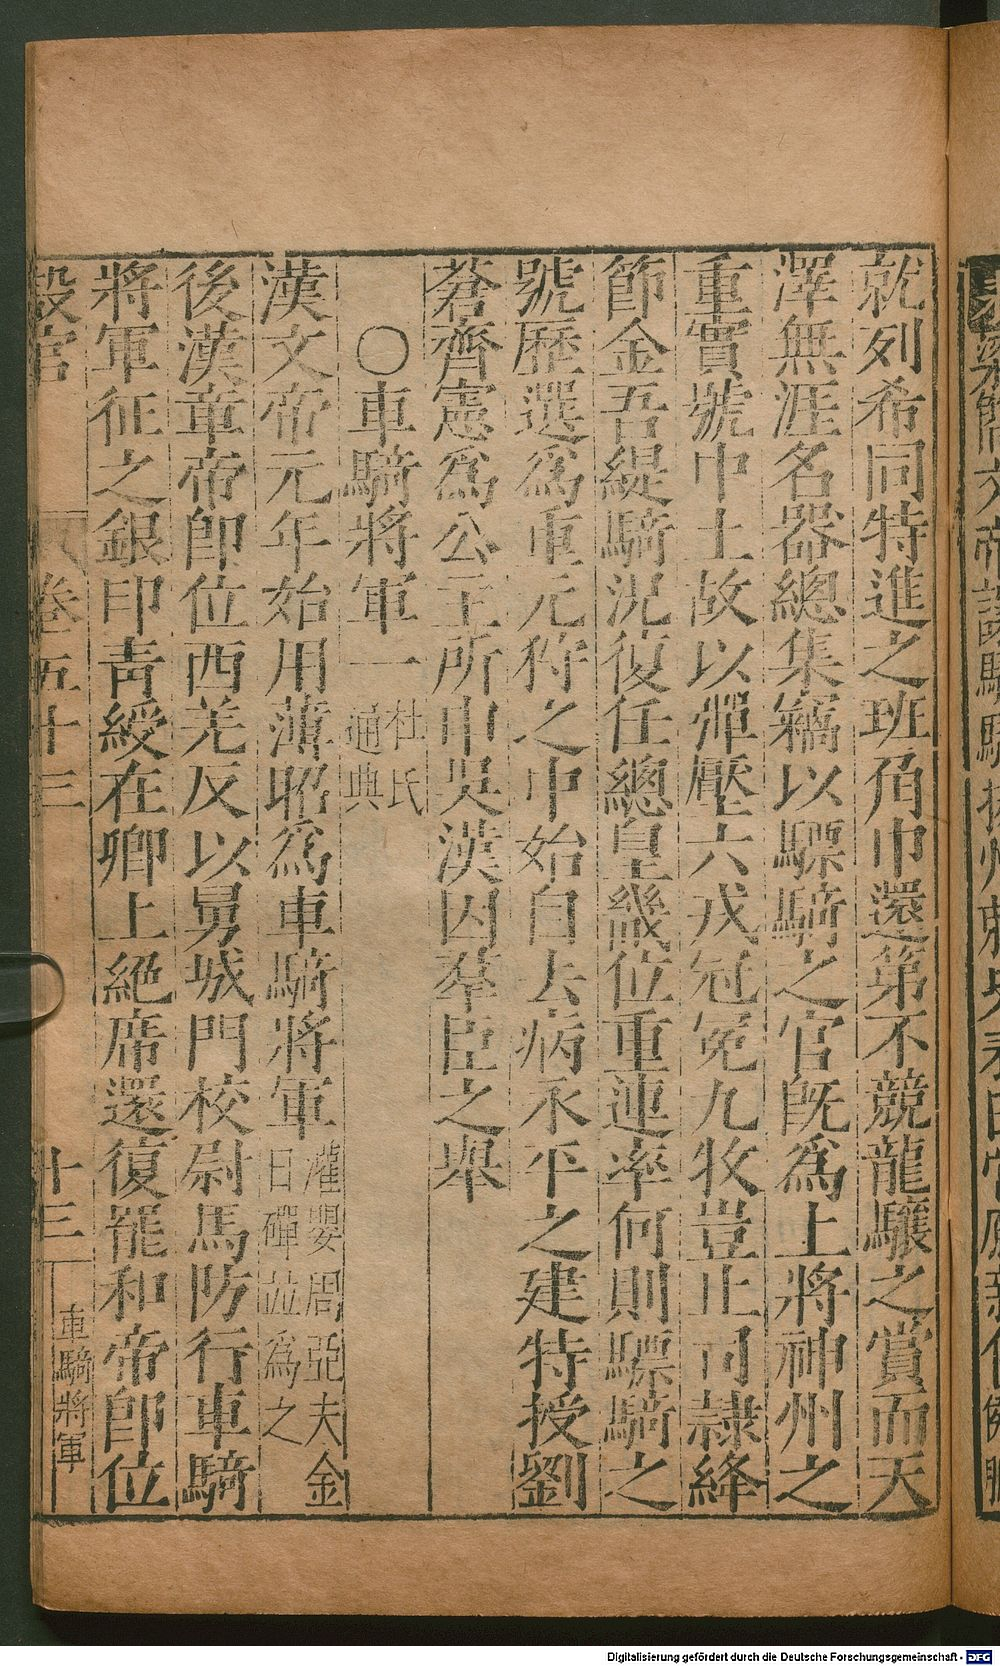 就列希同特進之班角巾還第不競龍驤之賞而天
澤無涯名器總集竊以驃騎之官旣爲上將神州之
重實號中土故以彈壓六戎冠冕九牧豈止司隸絳
節金吾緹騎況復任總皇畿位重連率何則驃騎之
號歷選爲重元狩之中始自去病永平之建特授劉
蒼齊憲爲公主所申吳漢因羣臣之舉
○車騎將軍一 杜氏通典
漢文帝元年始用薄昭爲車騎將軍 灌嬰周亞夫金日磾竝爲之
後漢章帝卽位西羌反以舅城門校尉馬防行車騎
將軍征之銀印靑綬在卿上絕席還復罷和帝卽位
設官
卷五十三
十三
車騎將軍
Digitalisierung gefördert durch die Deutsche Forschungsgemeinschaft - DFG